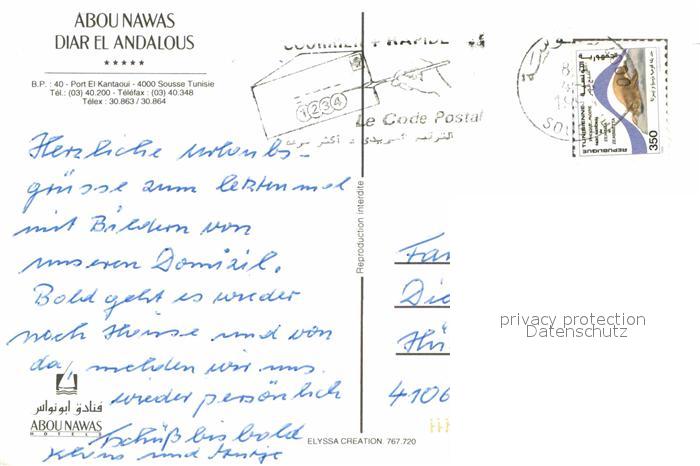 ABOU NAWAS
DIAR EL ANDALOUS
★★★★★
B.P. : 40 - Port El Kantaoui - 4000 Sousse Tunisie
Tél.: (03) 40.200 - Téléfax : (03) 40.348
Télex : 30.863 / 30.864
COURRIER + RAPIDE
1234
Le Code Postal
الترقيم البريدي
350
REPUBLIQUE
TUNISIENNE
Herzliche Urlaubs-
grüsse zum letztenmal
mit Bildern von
unserem Domizil.
Bald geht es wieder
nach Hause und von
da, melden wir uns
wieder persönlich
Tschüß bis bald
Klaus und
Reproduction interdite
Fam
Die
Hü
4106
privacy protection
Datenschutz
فنادق ابونواس
ABOU NAWAS
HOTELS
ELYSSA CREATION 767.720